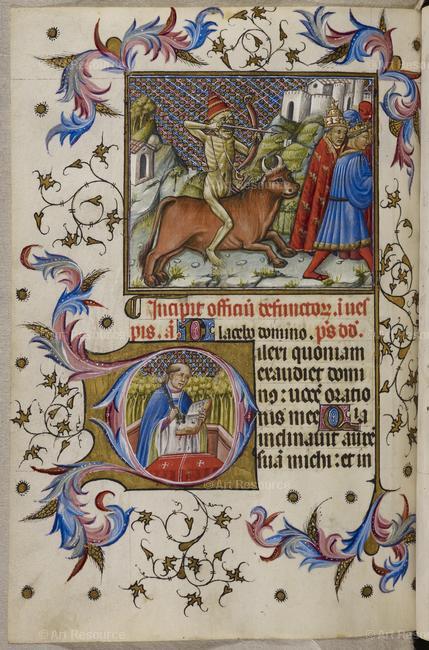 ¶ Incipit officiũ defunctoꝝ. i ves
pis. a̅ Placebo domino. ps dd̅.
Dilexi quoniam
exaudiet domi
nus: voce̅ oratio
nis mee Quia
inclinavit aure̅
sua̅ michi: et in
© Art Resource
© Art Resource
© Art Resource